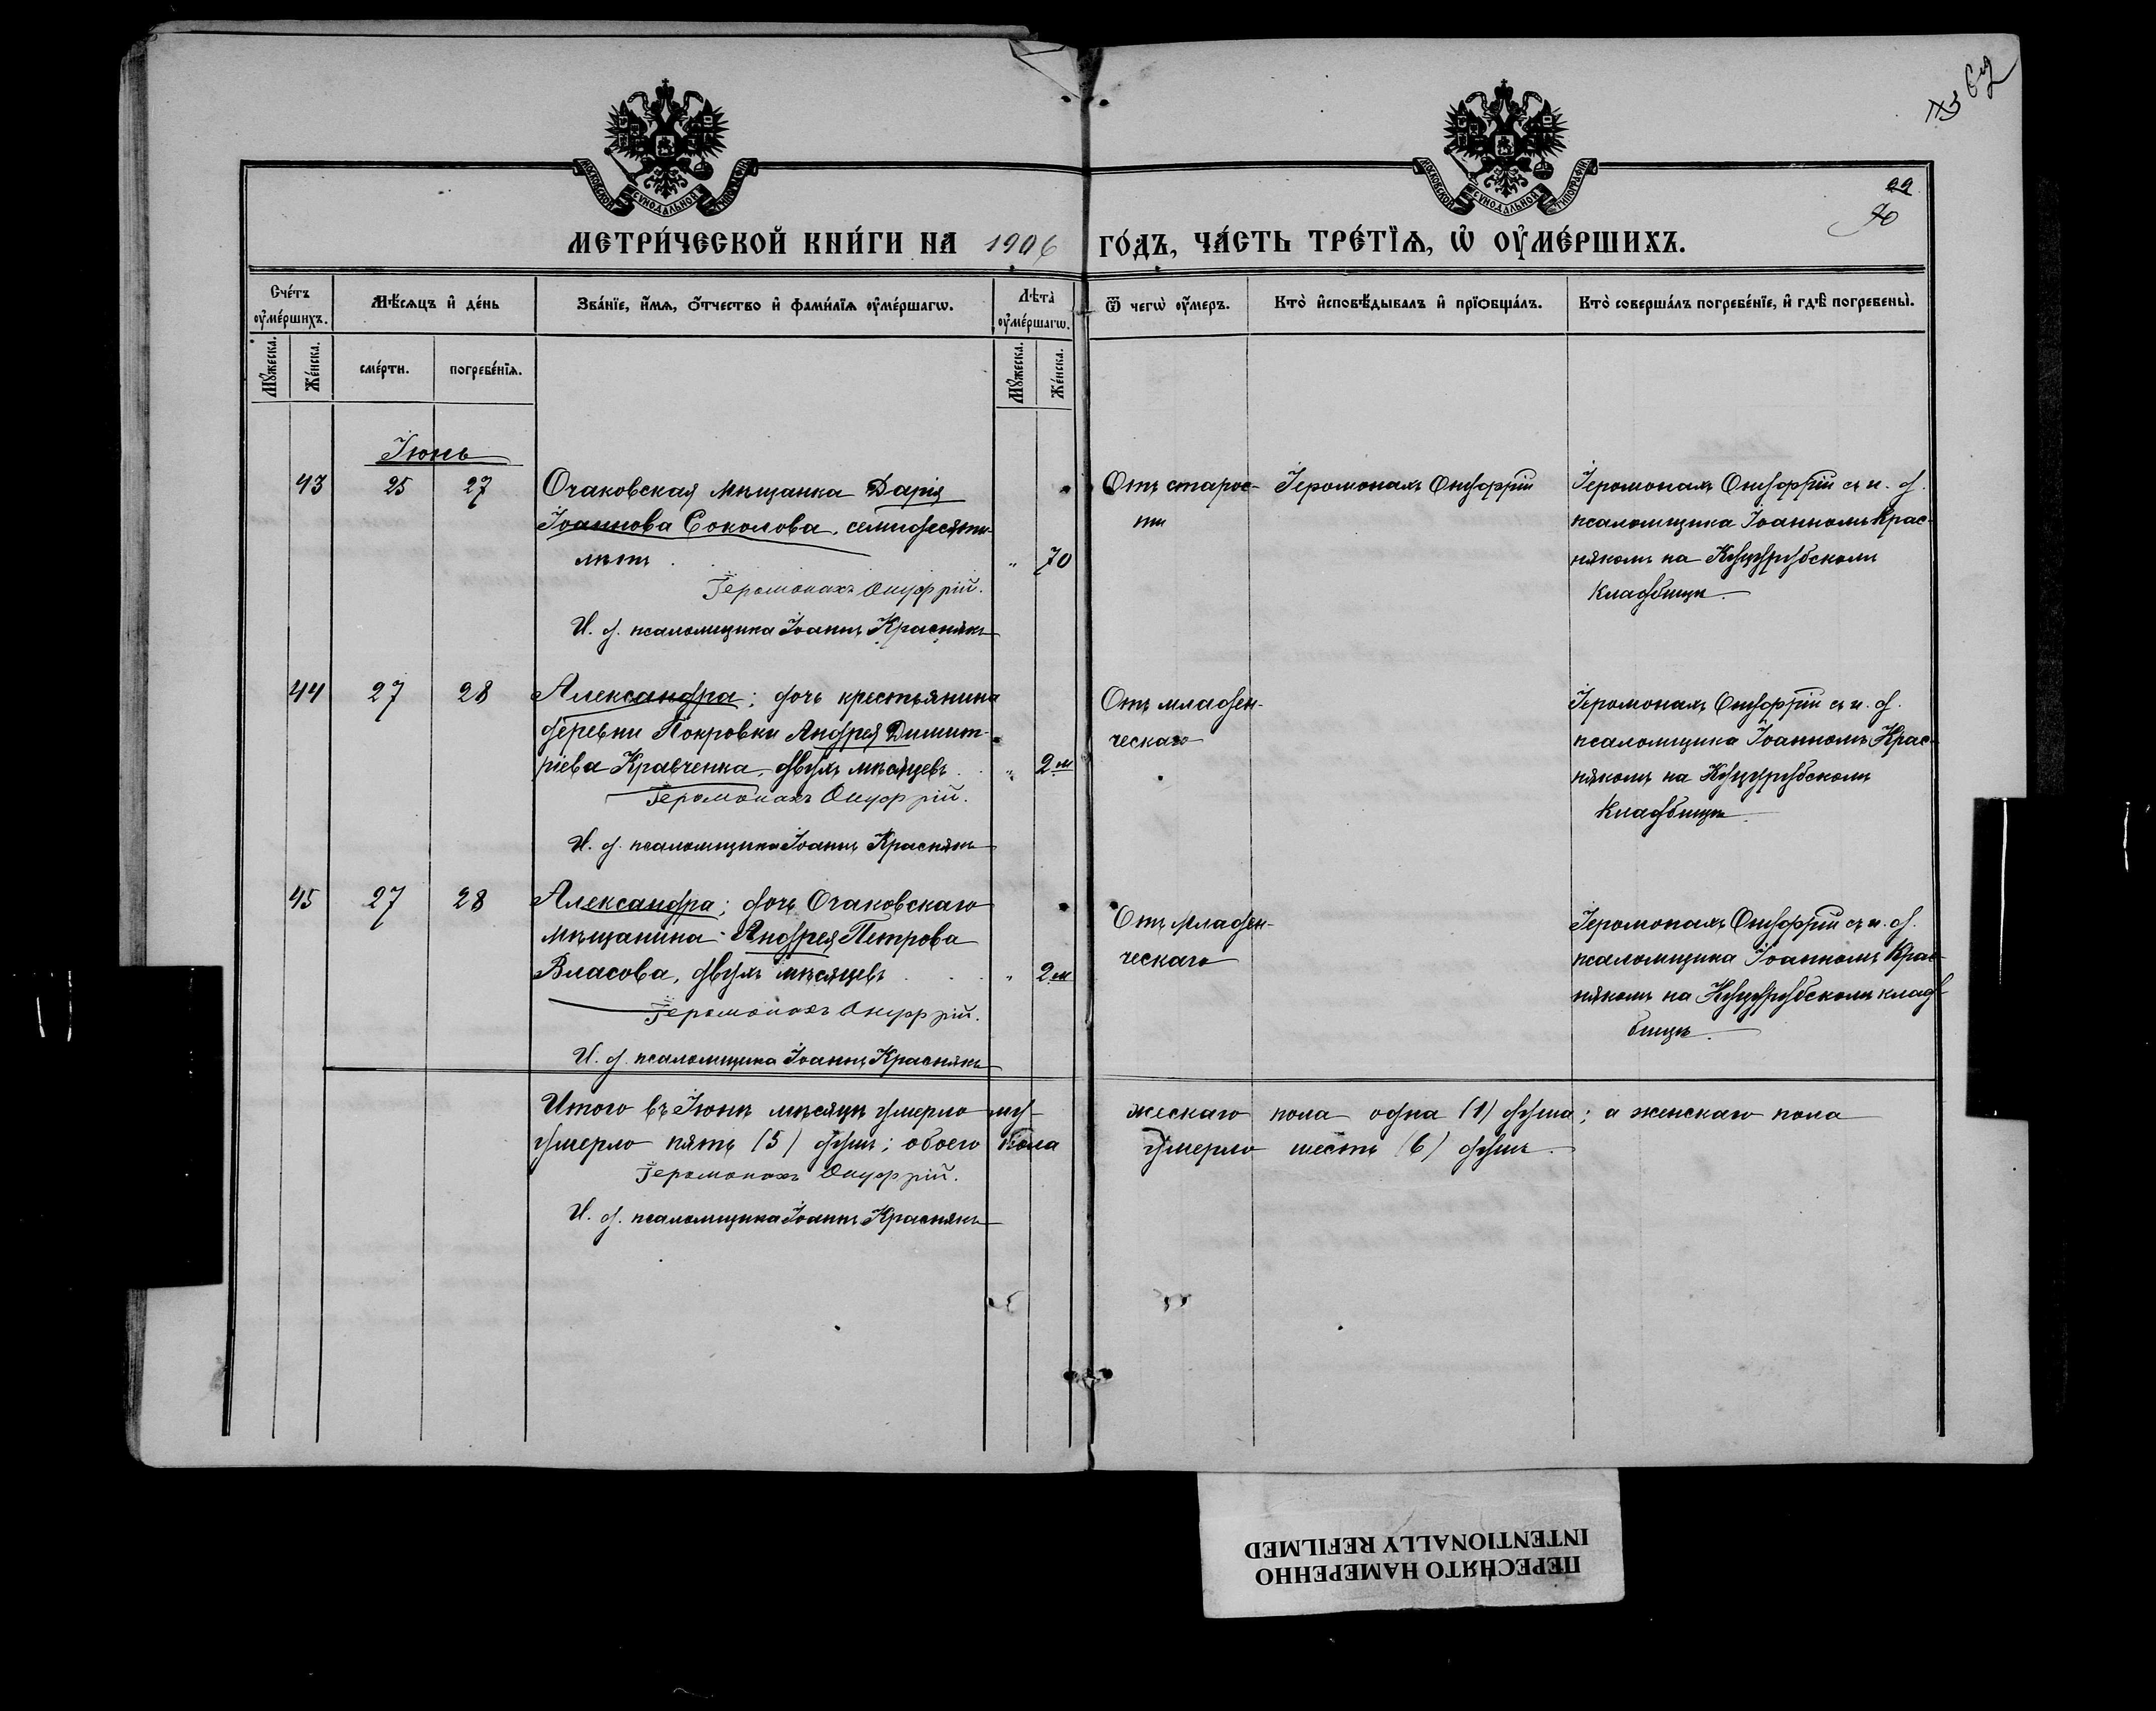 МОСКОВСКОЙ СУНОДАЛЬНОЙ ТИПОГРАФІИ
МОСКОВСКОЙ СУНОДАЛЬНОЙ ТИПОГРАФІИ
22
МЕТРИ́ЧЕСКОЙ КНИ́ГИ НА 1906 ГО́ДЪ, ЧА́СТЬ ТРЕ́ТЇѦ, Ѡ҆ ОУ҆МЕ́РШИХЪ.
Сче́тъ оу҆ме́ршихъ.
Мѣ́сѧцъ и҆ де́нь
Зва́нїе, и҆́мѧ, ѻ҆́тчество и҆ фами́лїѧ оу҆ме́ршагѡ.
Лѣта̀ оу҆ме́ршагѡ.
Ѿ чегѡ̀ оу҆́меръ.
Кто̀ и҆сповѣ́дывалъ и҆ прїѻбща́лъ.
Кто̀ соверша́лъ погребе́нїе, и҆ гдѣ̀ погребены̀.
Мꙋ́жеска.
Же́нска.
сме́рти.
погребе́нїѧ.
Мꙋ́жеска.
Же́нска.
Іюнь
43 25 27 Очаковская мѣщанка Дарія
Іоаннова Соколова, семидесяти
лѣтъ " 70
Іеромонахъ Онуфрій.
И. д. псаломщика Іоаннъ Краснякъ
От старос-
ти
Іеромонахъ Онуфрій
Іеромонахъ Онуфрій съ и. д.
псаломщика Іоанномъ Крас-
някомъ на Куцурубскомъ
кладбищѣ.
44 27 28 Александра; дочь крестьянина
деревни Покровки Андрея Димит-
ріева Кравченка, двухъ мѣсяцевъ " 2 м
Іеромонахъ Онуфрій.
И. д. псаломщика Іоаннъ Краснякъ
Отъ младен-
ческаго
Іеромонахъ Онуфрій съ и. д.
псаломщика Іоанномъ Крас-
някомъ на Куцурубскомъ
кладбищѣ.
45 27 28 Александра; дочь Очаковскаго
мѣщанина Андрея Петрова
Власова, двухъ мѣсяцевъ " 2 м
Іеромонахъ Онуфрій.
И. д. псаломщика Іоаннъ Краснякъ
Отъ младен-
ческаго
Іеромонахъ Онуфрій съ и. д.
псаломщика Іоанномъ Крас-
някомъ на Куцурубскомъ клад-
бищѣ.
Итого въ Іюнѣ мѣсяцѣ умерло му-жескаго пола одна (1) душа; а женскаго пола
умерло пять (5) душъ; обоего пола умерло шесть (6) душъ.
Іеромонахъ Онуфрій.
И. д. псаломщика Іоаннъ Краснякъ
ПЕРЕСНЯТО НАМЕРЕННО
INTENTIONALLY REFILMED